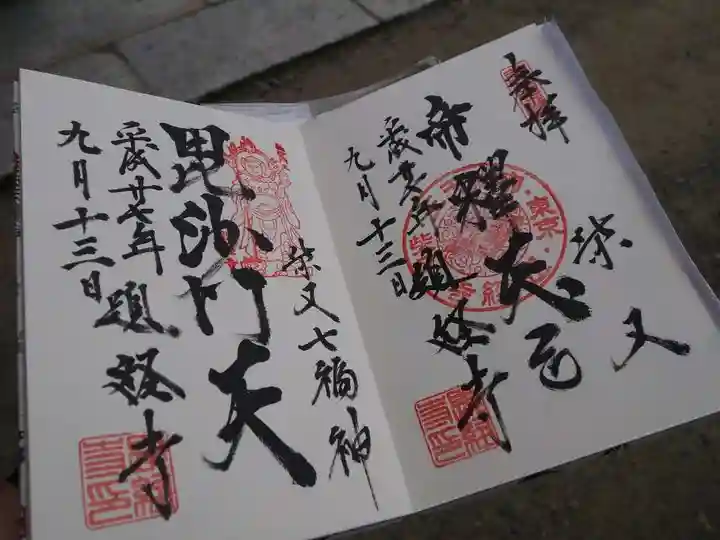 奉拝
柴又
帝釋天王
平成廿七年
九月十三日
題経寺
柴又七福神
毘沙門天
平成廿七年
九月十三日
題経寺